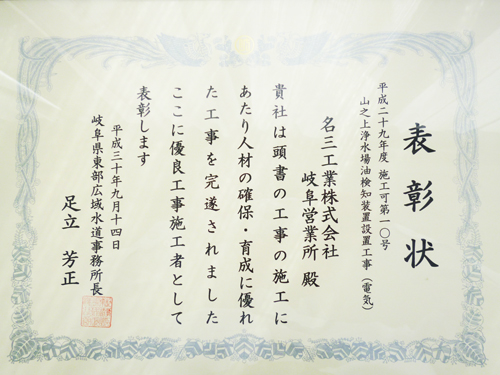 表彰状
平成二十九年度 施工可第一〇号
山之上浄水場油検知装置設置工事（電気）
名三工業株式会社
岐阜営業所 殿
貴社は頭書の工事の施工に
あたり人材の確保・育成に優れ
た工事を完遂されました
ここに優良工事施工者として
表彰します
平成三十年九月十四日
岐阜県東部広域水道事務所長
足立 芳正